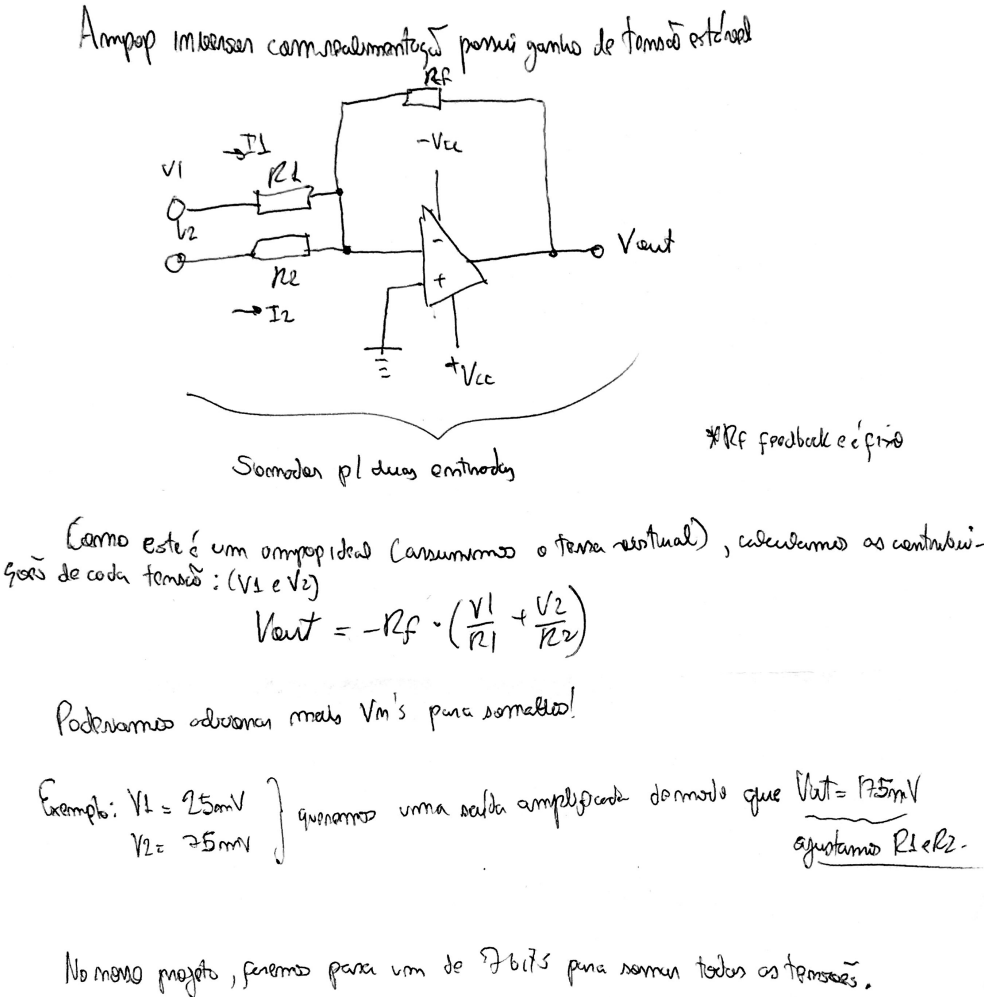 Ampop inversor com realimentação possui ganho de tensão estável
Rf
-Vcc
I1
V1
R1
V2
R2
I2
-
+
Vout
+Vcc
*Rf feedback e é fixo
Somador p/ duas entradas
Como este é um ampop ideal (assumimos o terra virtual), calculamos as contribui-
ções de cada tensão: (V1 e V2)
Vout = -Rf · (V1/R1 + V2/R2)
Poderiamos adicionar mais Vn's para somatório!
Exemplo: V1 = 25mV
V2 = 75mV
queremos uma saída amplificada de modo que Vout = 175mV
ajustamos R1 e R2.
No nosso projeto, faremos para um de 7bits para somar todas as tensões.